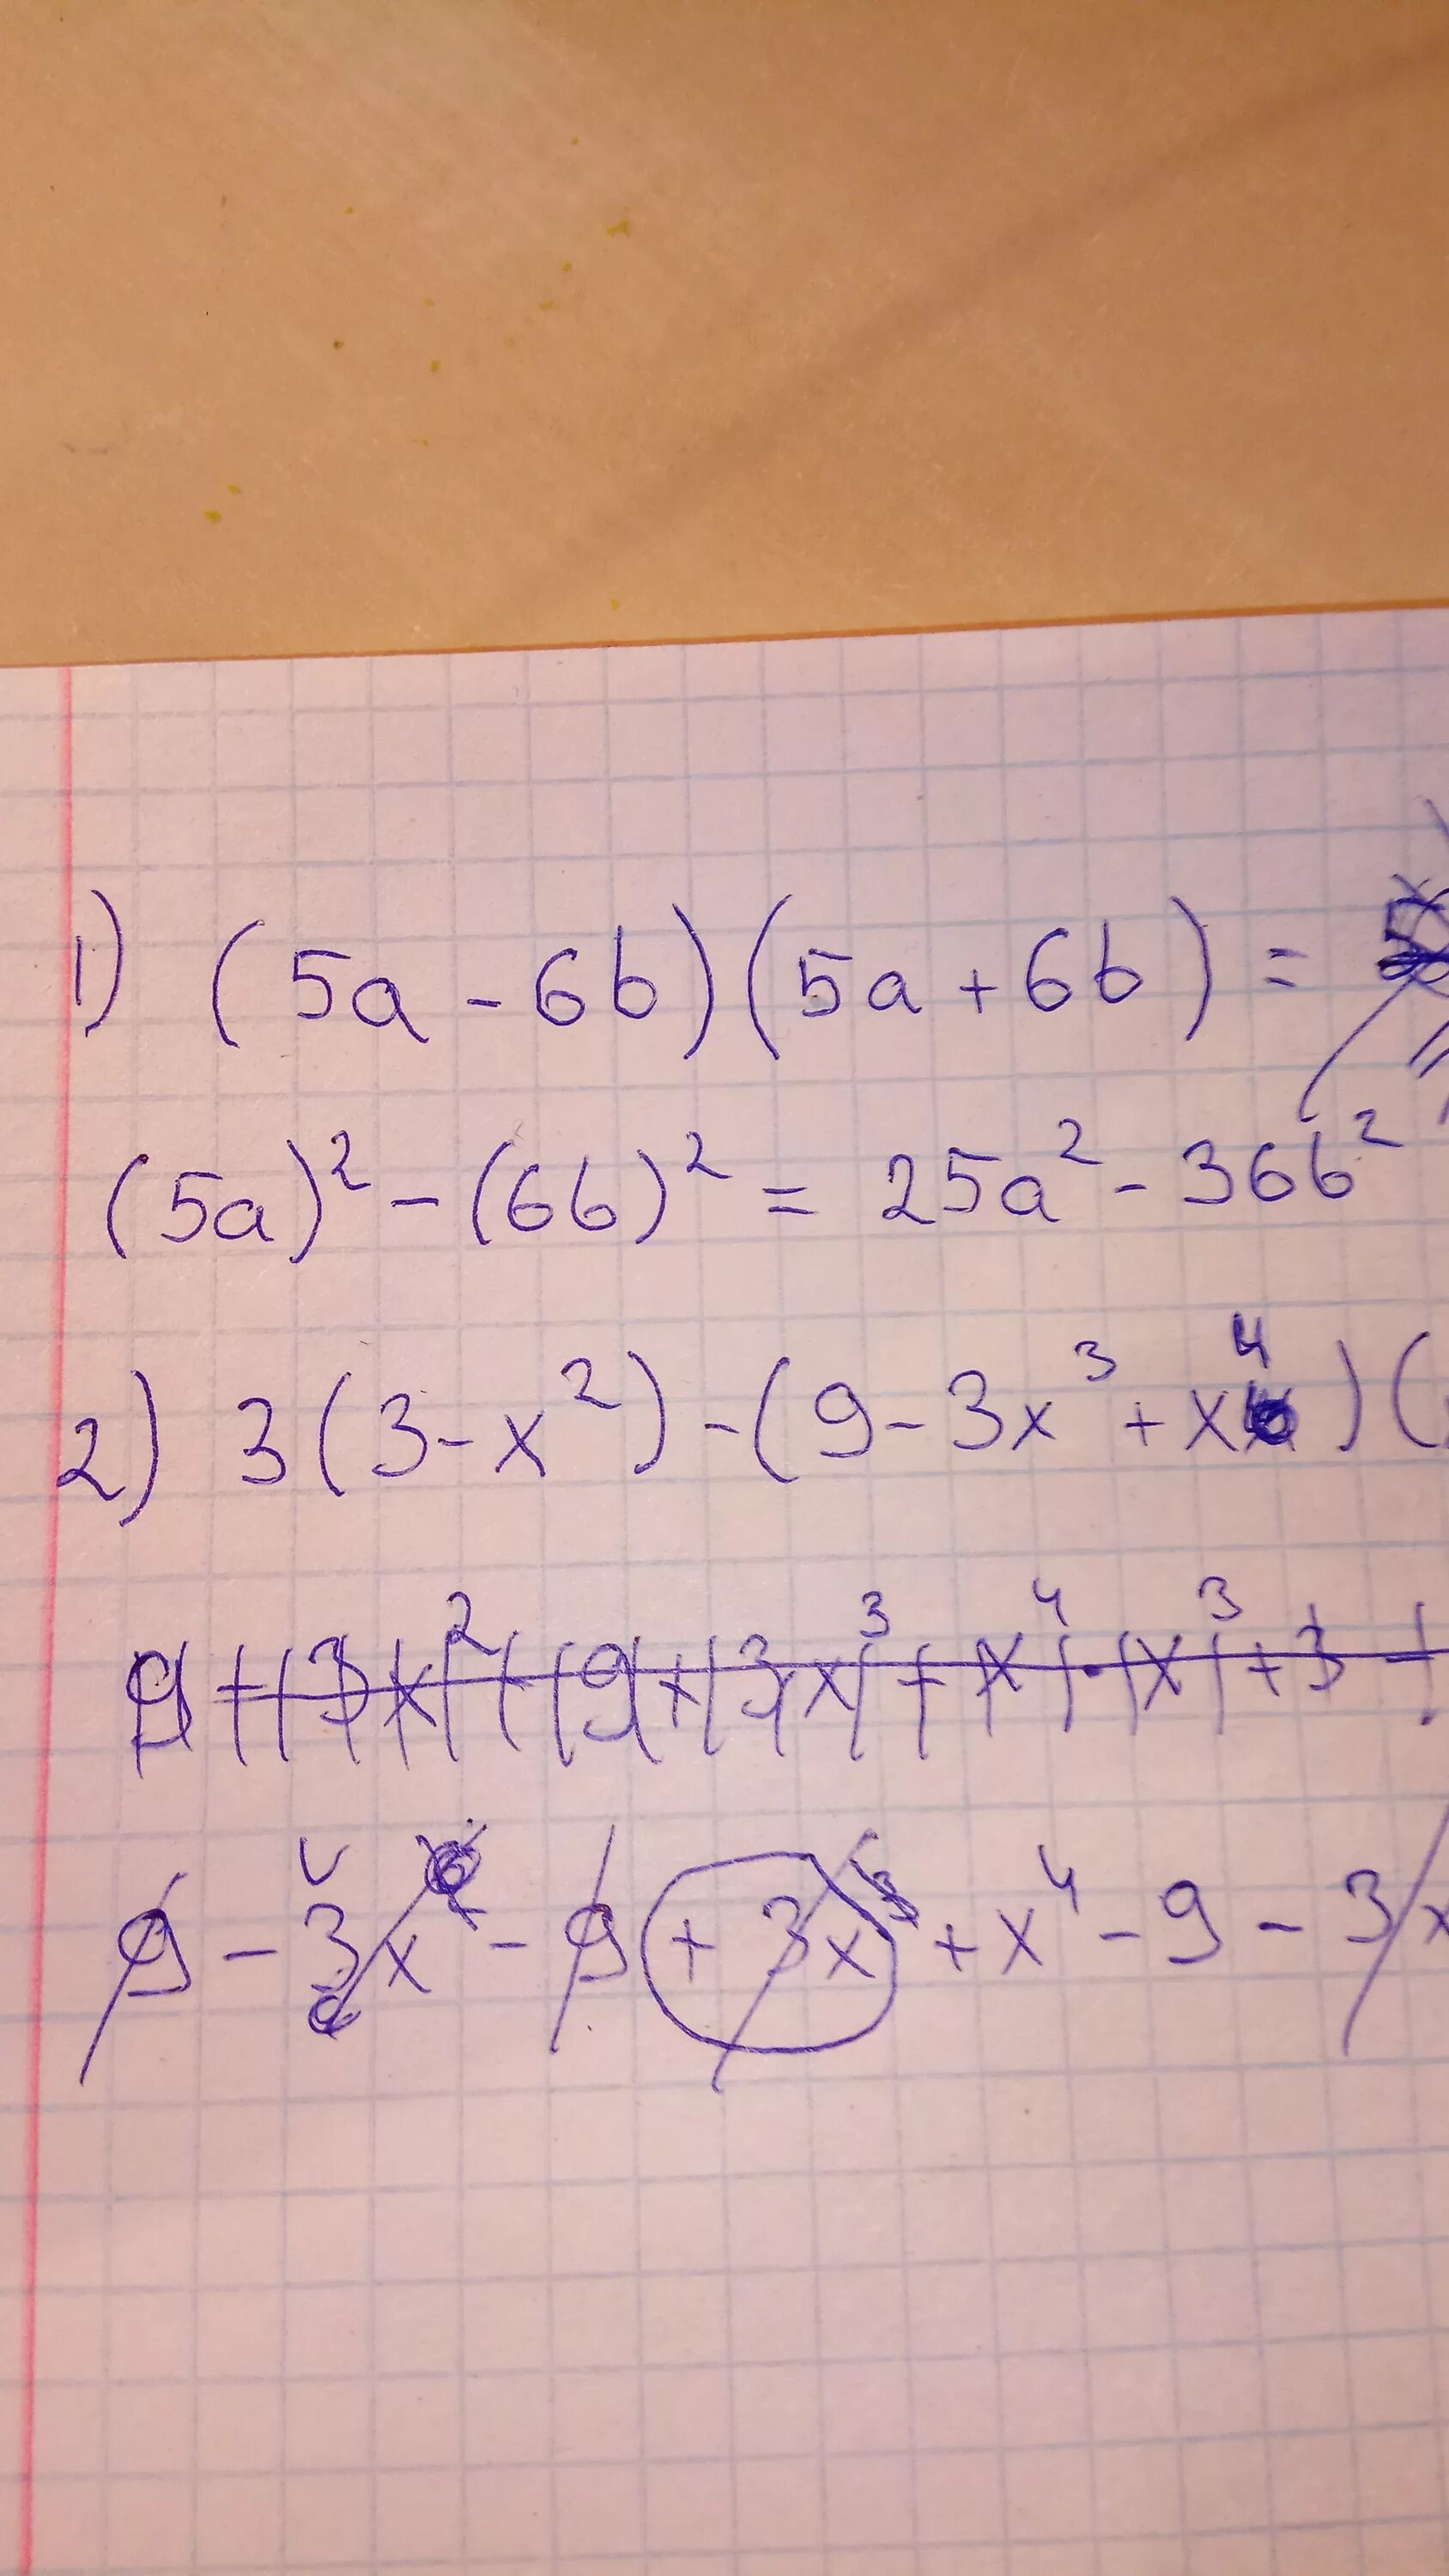 1) (5a - 6b)(5a + 6b) =
(5a)² - (6b)² = 25a² - 36b²
2) 3(3 - x²) - (9 - 3x³ + x⁴)(
9 - 3x² - 9 + 3x³ + x⁴ · x³ + 3 -
9 - 3x - 9 + 3x + x⁴ - 9 - 3x